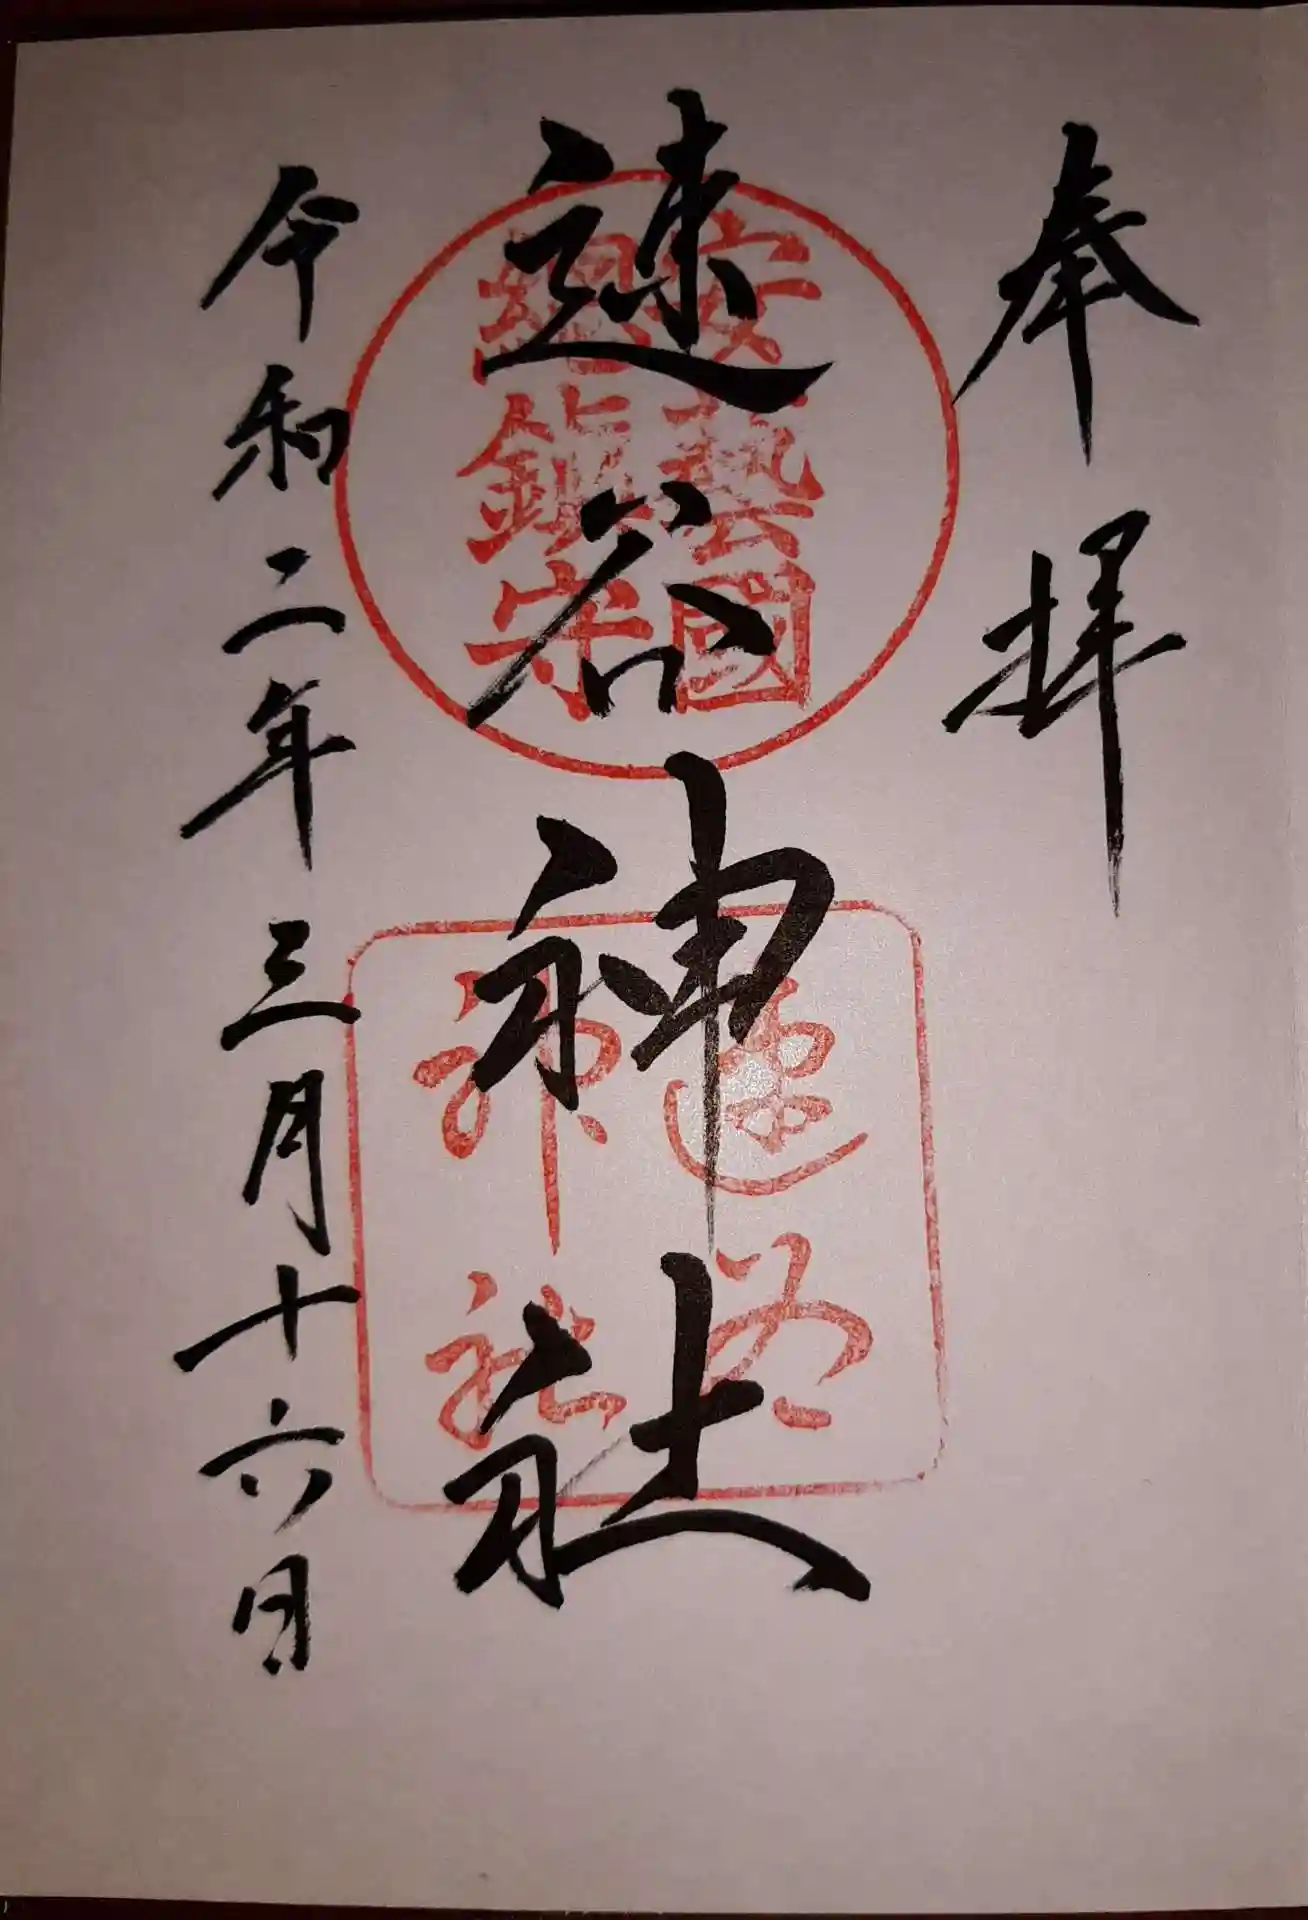 奉拝
安藝國
總鎮守
速谷神社
速谷
神社
令和二年三月十六日